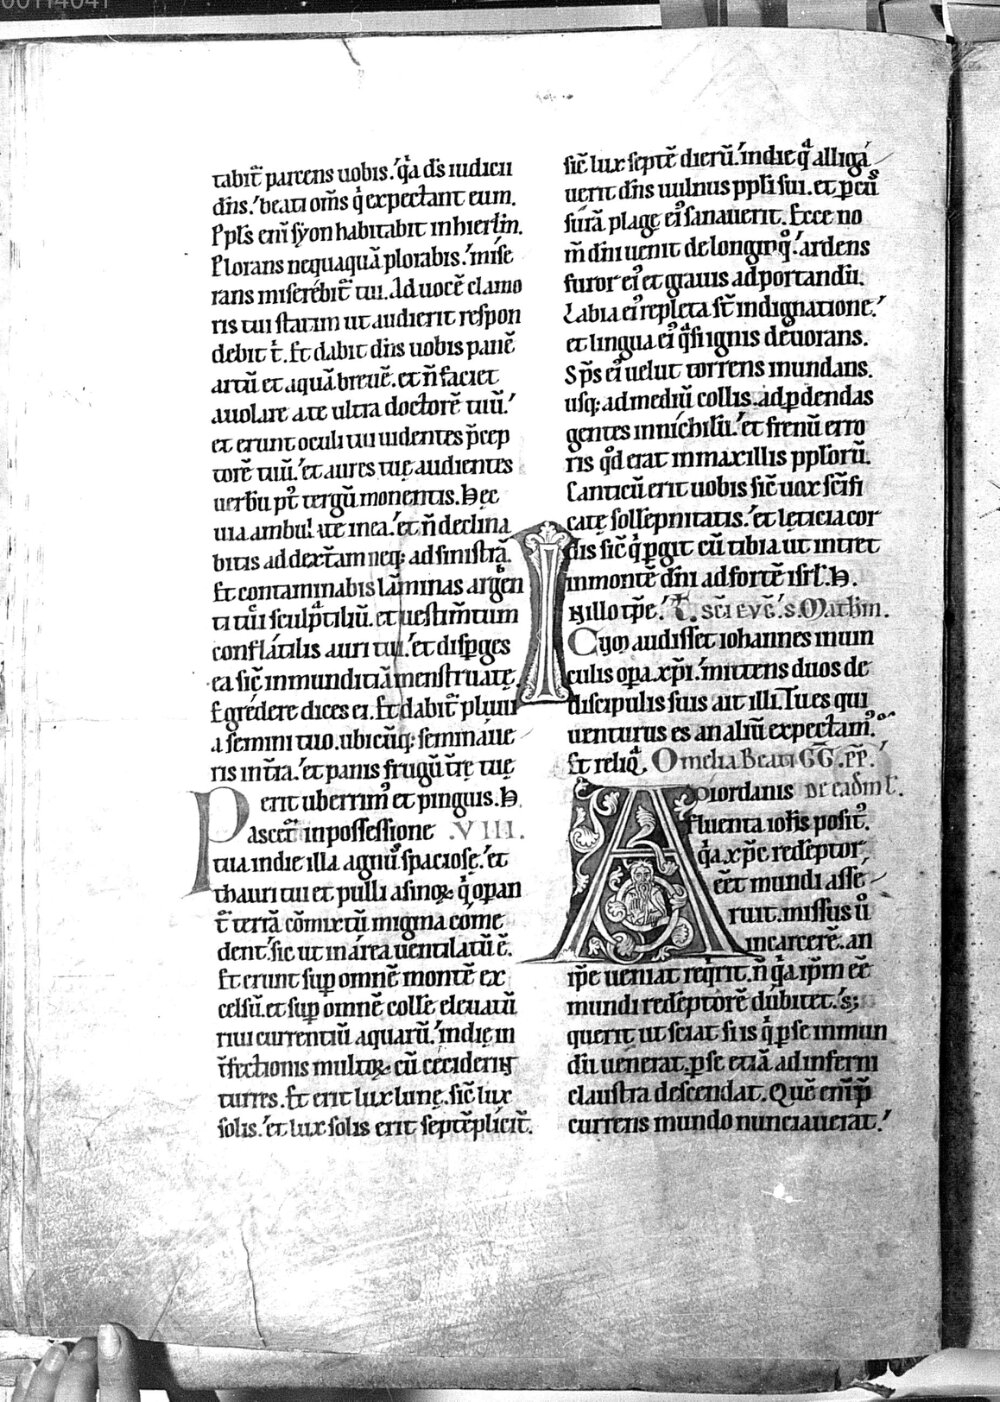 00114041
tabit᷑ parcens uobis. q̇a d̄s iudicii
dn̄s. beati om̄s q̇ expectant eum.
Ppl̄s em̄ syon habitabit in hierl̄m.
Plorans nequaquā plorabis. mise
rans miserebit᷑ tui. Ad uocē clamo
ris tui statim ut audierit respon
debit t̄. Et dabit dn̄s uobis panē
artū et aquā breuē. et n̄ faciet
auolare a te ultra doctorē tuū.
et erunt oculi tui uidentes p̄cep
torē tuū. et aures tuę audientes
uerbū pꝰ tergū monentis. Hec
uia ambulate in ea. et n̄ declina
bitis ad dext̄am neq; ad sinistrā.
Et contaminabis laminas argen
ti tui sculptiliū. et uestim̄tum
conflatilis auri tui. et disꝑges
ea sic̄ inmunditiā menstruatę.
Egredere dices ei. Et dabit᷑ pluui
a semini tuo. ubicūq; seminaue
ris in t̄ra. et panis frugū t̄rę tuę
erit uberrimꝰ et pinguis. H
Pascet᷑ in possessione .VIII.
tua in die illa agnꝰ spaciose. et
thauri tui et pulli asinoꝝ q̇ opan
t᷑ terrā cōmixtū migma come
dent. sic ut in area uentilatū ē.
Et erunt suꝑ omnē montē ex
celsū. et suꝑ omnē collē eleuatū
riui currentiū aquarū. in die in
t̄fectionis multoꝝ cū ceciderint
turres. Et erit lux lunę. sic̄ lux
solis. et lux solis erit septēplicit᷑.
sic̄ lux septē dierū. in die qᵃ alliga
uerit dn̄s uulnus ppl̄i sui. et ꝑcus
surā plagę eiꝰ sanauerit. Ecce no
m̄ dn̄i uenit de longinqͦ. ardens
furor eiꝰ et grauis ad portandū.
Labia eiꝰ repleta st̄ indignatione.
et lingua eiꝰ qᵃsi ignis deuorans.
Sp̄s eiꝰ uelut torrens inundans.
usq; ad mediū colli. ad ꝑdendas
gentes in nichilū. et frenū erro
ris qd̄ erat in maxillis pplorū.
Canticū erit uobis sic̄ uox sc̄ifi
catę sollepnitatis. et lęticia cor
dis sic̄ q̇ ꝑgit cū tibia ut intret
in montē dn̄i ad fortē isrl̄. H.
In illo tp̄e. sc̄i euc̄. s. Mathm.
Cum audisset iohannes in uin
culis opa xp̄i. mittens duos de
discipulis suis ait illi. Tu es qui
uenturus es an aliū expectamꝰ
Et reliqᵃ. Omelia Beati GG. P̄P̄.
A iordanis De eadm̄ L̄.
fluenta ioh̄s positꝰ.
q̇a xp̄c redēptor
eēt mundi asse
ruit. missus ū
in carcerē. an
ip̄e ueniat reqͥrit. n̄ q̇a ip̄m eē
mundi redēptorē dubitet. s;
querit ut sciat si is q̇ ꝑ se in mun
dū uenerat. ꝑ se etiā ad inferni
claustra descendat. Quē eni p̄
currens mundo nunciauerat.